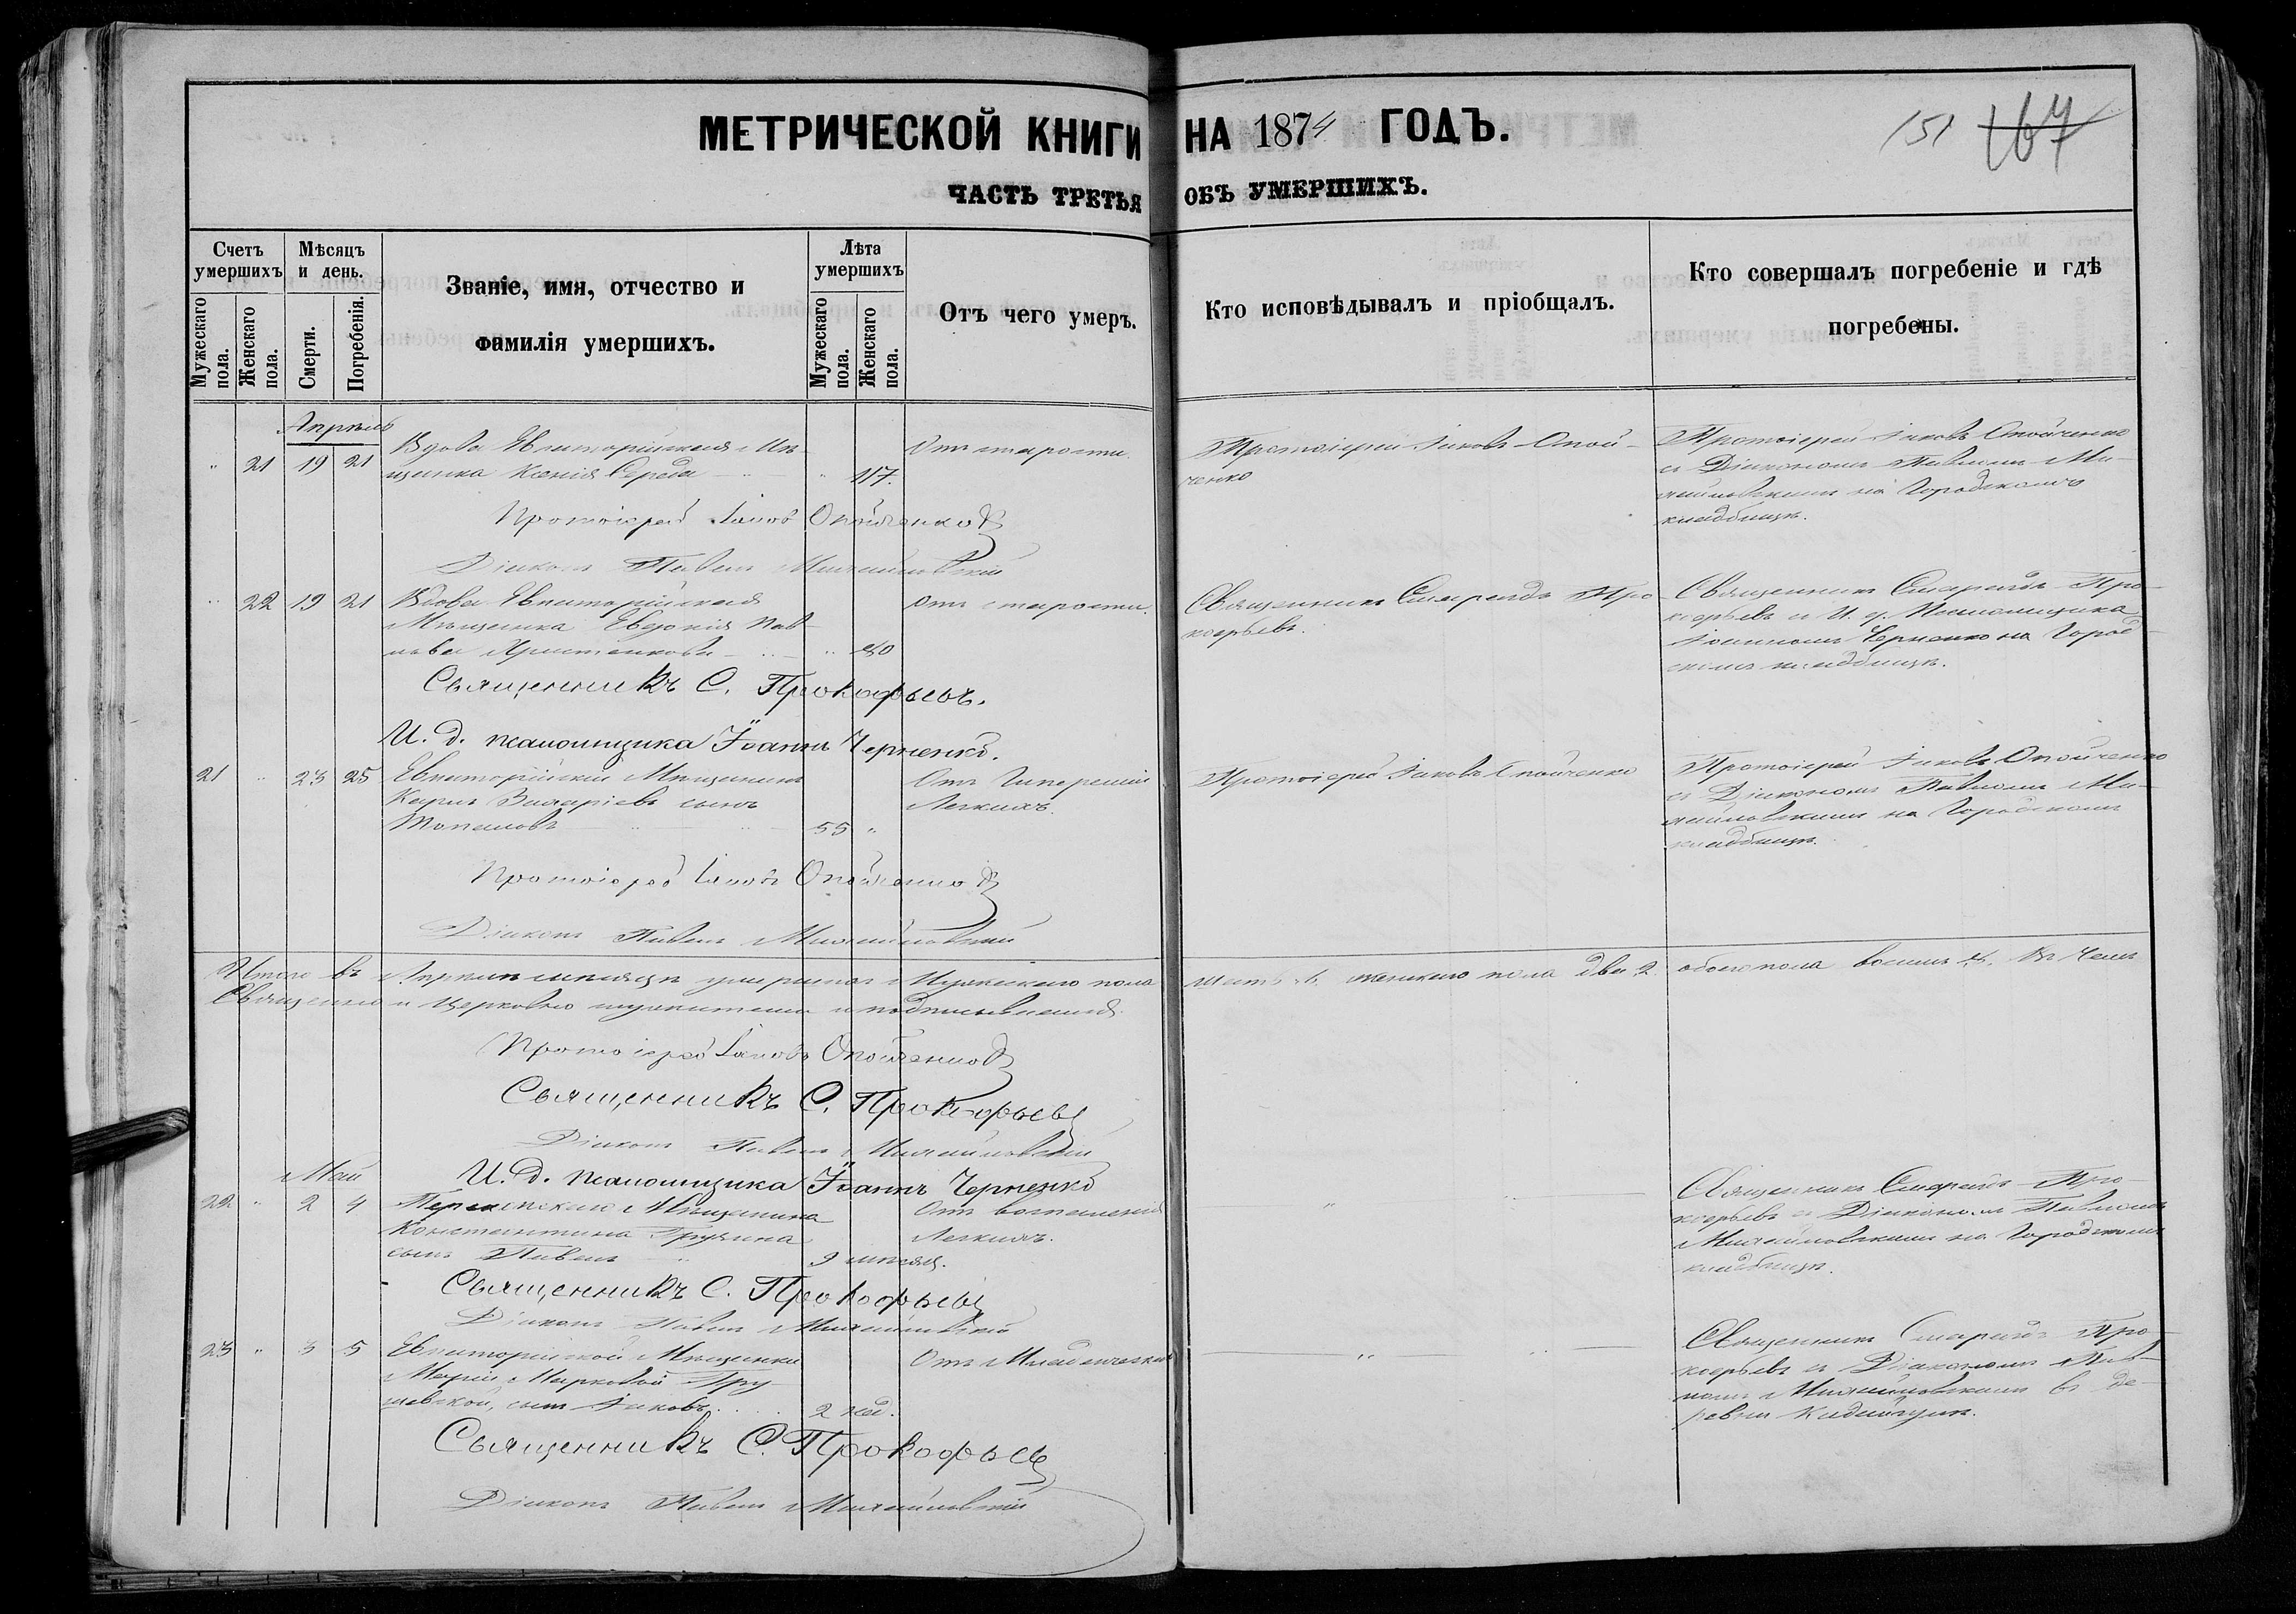 МЕТРИЧЕСКОЙ КНИГИ НА 1874 ГОДЪ.
151 167
ЧАСТЬ ТРЕТЬЯ ОБЪ УМЕРШИХЪ.
Счетъ умершихъ
Мужескаго пола.
Женскаго пола.
Мѣсяцъ и день.
Смерти.
Погребенія.
Званіе, имя, отчество и
фамилія умершихъ.
Лѣта умершихъ
Мужескаго пола.
Женскаго пола.
Отъ чего умеръ.
Кто исповѣдывалъ и пріобщалъ.
Кто совершалъ погребеніе и гдѣ
погребены.
Апрѣль
" 21 19 21
Вдова Евпаторійская Мѣ-
щанка Ксенія Середа " 117.
Отъ старости.
Протоіерей Іаковъ Опой-
ченко
Протоіерей Іаковъ Опойченко
съ Діакономъ Павломъ Ми-
хайловскимъ на Городскомъ
кладбищѣ.
Протоіерей Іаковъ Опойченко
Діаконъ Павелъ Михайловскій
" 22 19 21
Вдова Евпаторійская
Мѣщанка Евдокія Пав-
лова " 80
Отъ старости.
Священникъ Смарагдъ Про-
кофьевъ.
Священникъ Смарагдъ Про-
кофьевъ и И. д. Псаломщика
Іоанномъ Черненко на Город-
скомъ кладбищѣ.
Священникъ С. Прокофьевъ.
И. д. псаломщика Іоаннъ Черненко.
21 " 23 25
Евпаторійскій Мѣщанинъ
Кирилъ Захаріевъ сынъ
55 "
Отъ
Легкихъ.
Протоіерей Іаковъ Опойченко
Протоіерей Іаковъ Опойченко
съ Діакономъ Павломъ Ми-
хайловскимъ на Городскомъ
кладбищѣ.
Протоіерей Іаковъ Опойченко
Діаконъ Павелъ Михайловскій
Итого въ Апрѣлѣ мѣсяцѣ умершихъ Мужескаго пола шесть 6. женскаго пола два 2. обоего пола восемь 8. Въ чемъ
Священно и Церковно служители и подписываемся.
Протоіерей Іаковъ Опойченко
Священникъ С. Прокофьевъ
Діаконъ Павелъ Михайловскій
И. д. псаломщика Іоаннъ Черненко
Май
22 " 2 4
Перекопскаго Мѣщанина
Константина
сынъ Павелъ 9 мѣсяц.
Отъ воспаленія
Легкихъ.
Священникъ Смарагдъ Про-
кофьевъ съ Діакономъ Павломъ
Михайловскимъ на Городскомъ
кладбищѣ.
Священникъ С. Прокофьевъ
Діаконъ Павелъ Михайловскій
23 " 3 5
Евпаторійской Мѣщанки
Маріи Марковой Гру-
шевской, сынъ Іаковъ. 2 нед.
Отъ
Священникъ Смарагдъ Про-
кофьевъ съ Діакономъ Пав-
ломъ Михайловскимъ въ де-
ревни
Священникъ С. Прокофьевъ
Діаконъ Павелъ Михайловскій